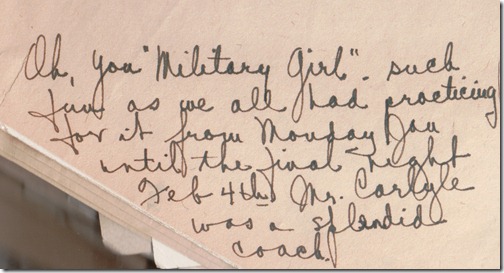 Oh, you "Military Girl". such
fun as we all had practicing
for it from Monday Jan
until the final night
Feb 4th. Mr. Carlyle
was a splendid
coach.